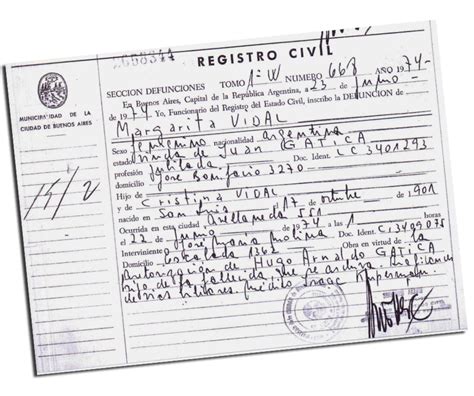 2668344
REGISTRO CIVIL
SECCION DEFUNCIONES TOMO 1º W NUMERO 668 AÑO 1974
MUNICIPALIDAD DE LA
CIUDAD DE BUENOS AIRES
En Buenos Aires, Capital de la República Argentina, a 23 de junio
de 1974 Yo, Funcionario del Registro del Estado Civil, inscribo la DEFUNCION de
Margarita VIDAL
Sexo femenino nacionalidad argentina
estado viuda de Juan GATICA
profesión jubilada Doc. Ident. LC 3401293
domicilio José Bonifacio 3270
Hijo de
y de Cristina VIDAL
nacido en San Luis 17 de octubre de 1901
Ocurrida en esta ciudad, Avellaneda 551
el 22 de junio de 1974 a las 1 horas
Interviniente José María Molina Doc. Ident. C 3409075
Domicilio Escalada 1362 Obra en virtud de la
autorización de Hugo Arnaldo GATICA
hijo de la fallecida que se archiva
15/2